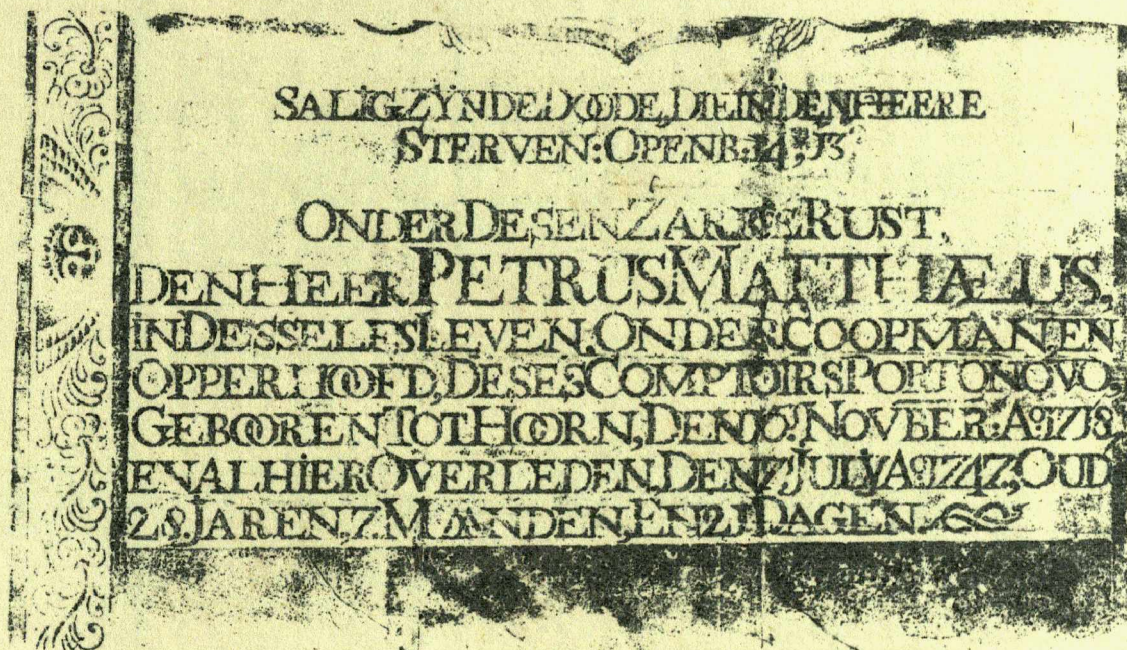 SALIG ZYN DE DOODE, DIE IN DEN HEERE
STERVEN: OPENB: 14, 13
ONDER DESEN ZARKE RUST,
DEN HEER PETRUS MATTHÆUS,
IN DESSELFS LEVEN, ONDERCOOPMAN, EN
OPPERHOOFD, DESES COMPTOIRS PORTO NOVO,
GEBOOREN TOT HOORN, DEN 16: NOVBER: Aº 1718
EN ALHIER OVERLEDEN, DEN 7 JULY Aº 1747, OUD
28. JAREN, 7. MAANDEN, EN 21 DAGEN.